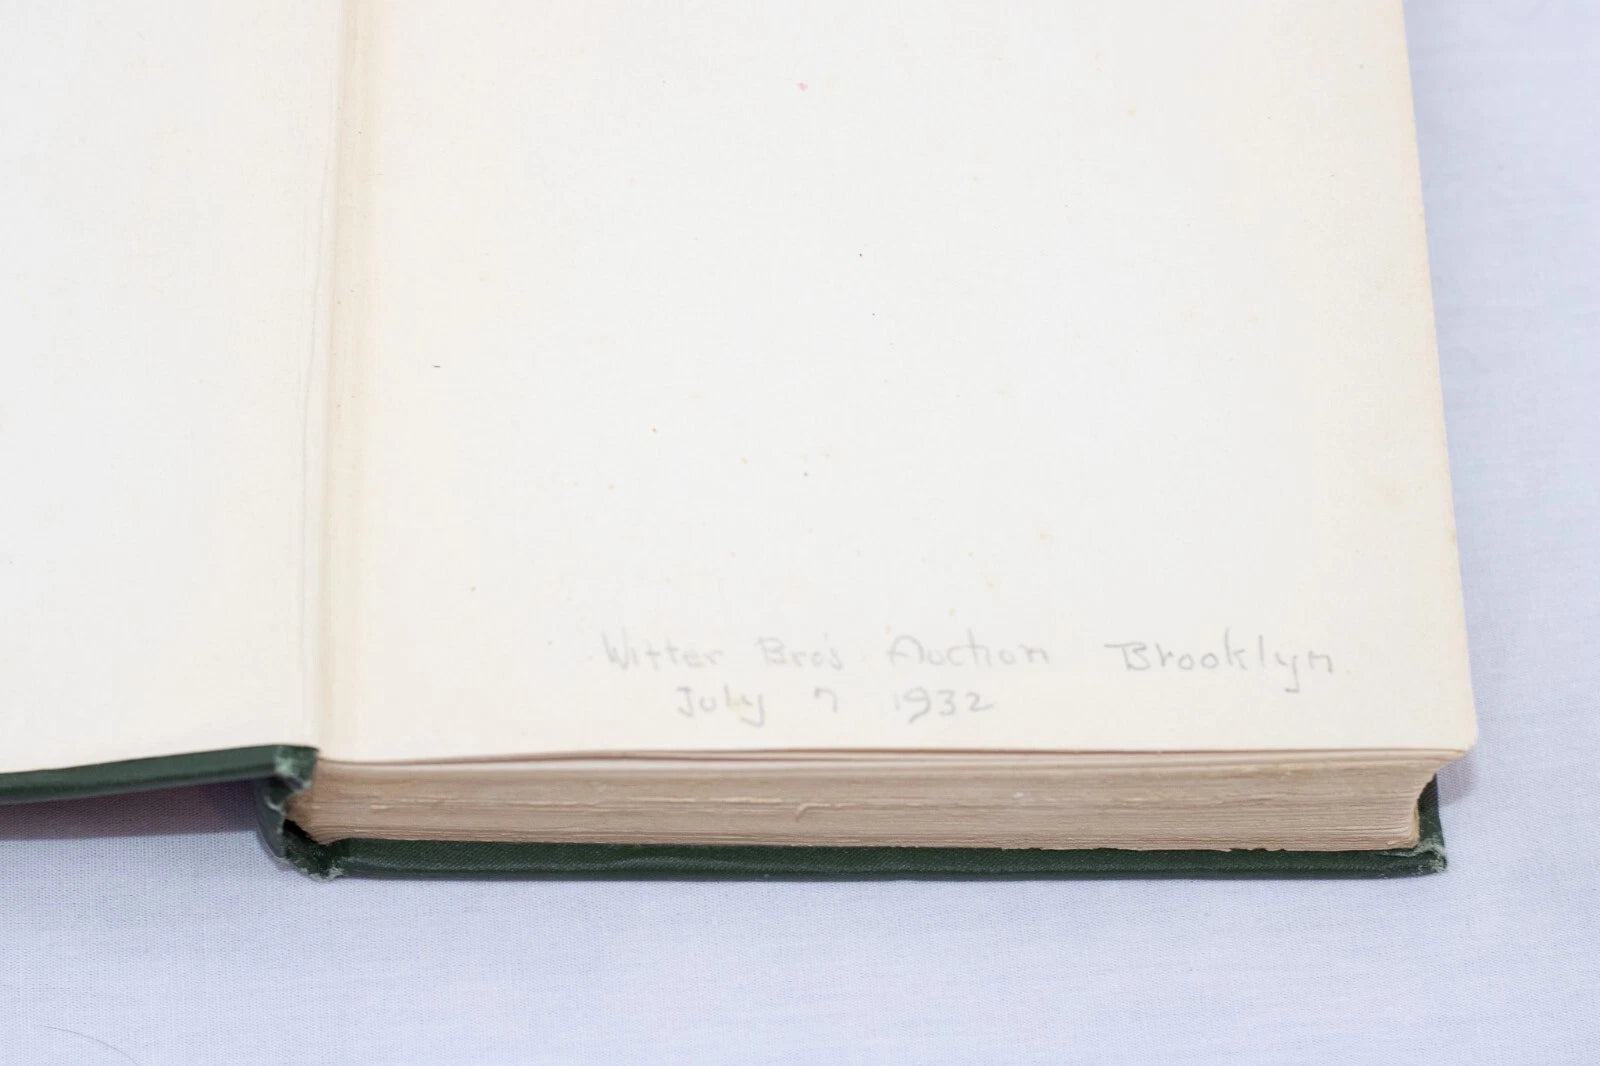 Witter Bro's Auction Brooklyn
July 7 1932